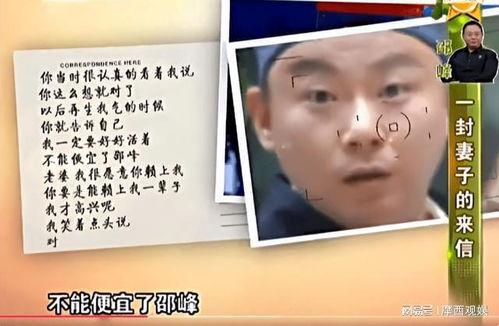 CORRESPONDENCE HERE
你当时很认真的看着我说
你这么想就对了
以后再生我气的时候
你就告诉自己
我一定要好好活着
不能便宜了邵峰
老婆我很愿意你赖上我
你要是能赖上我一辈子
我才高兴呢
我笑着点头说
对
邵峰
一封妻子的来信
不能便宜了邵峰
搜狐号@犀西观娱